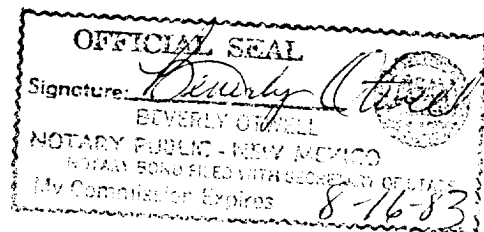 OFFICIAL SEAL
Signature: Beverly Otwell
BEVERLY OTWELL
NOTARY PUBLIC - NEW MEXICO
NOTARY BOND FILED WITH SECRETARY OF STATE
My Commission Expires 8-16-83